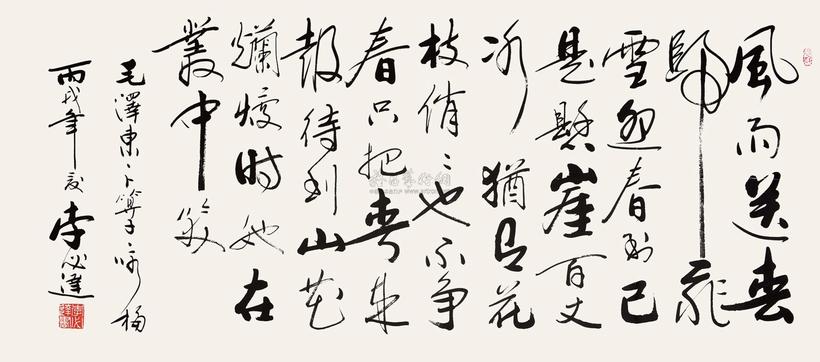 風雨送春
歸飛
雪迎春到已
是懸崖百丈
冰猶有花
枝俏〻也不争
春只把春来
報待到山花
爛熳時她在
叢中笑
毛澤東、卜算子、咏梅
丙戌年夏李必達